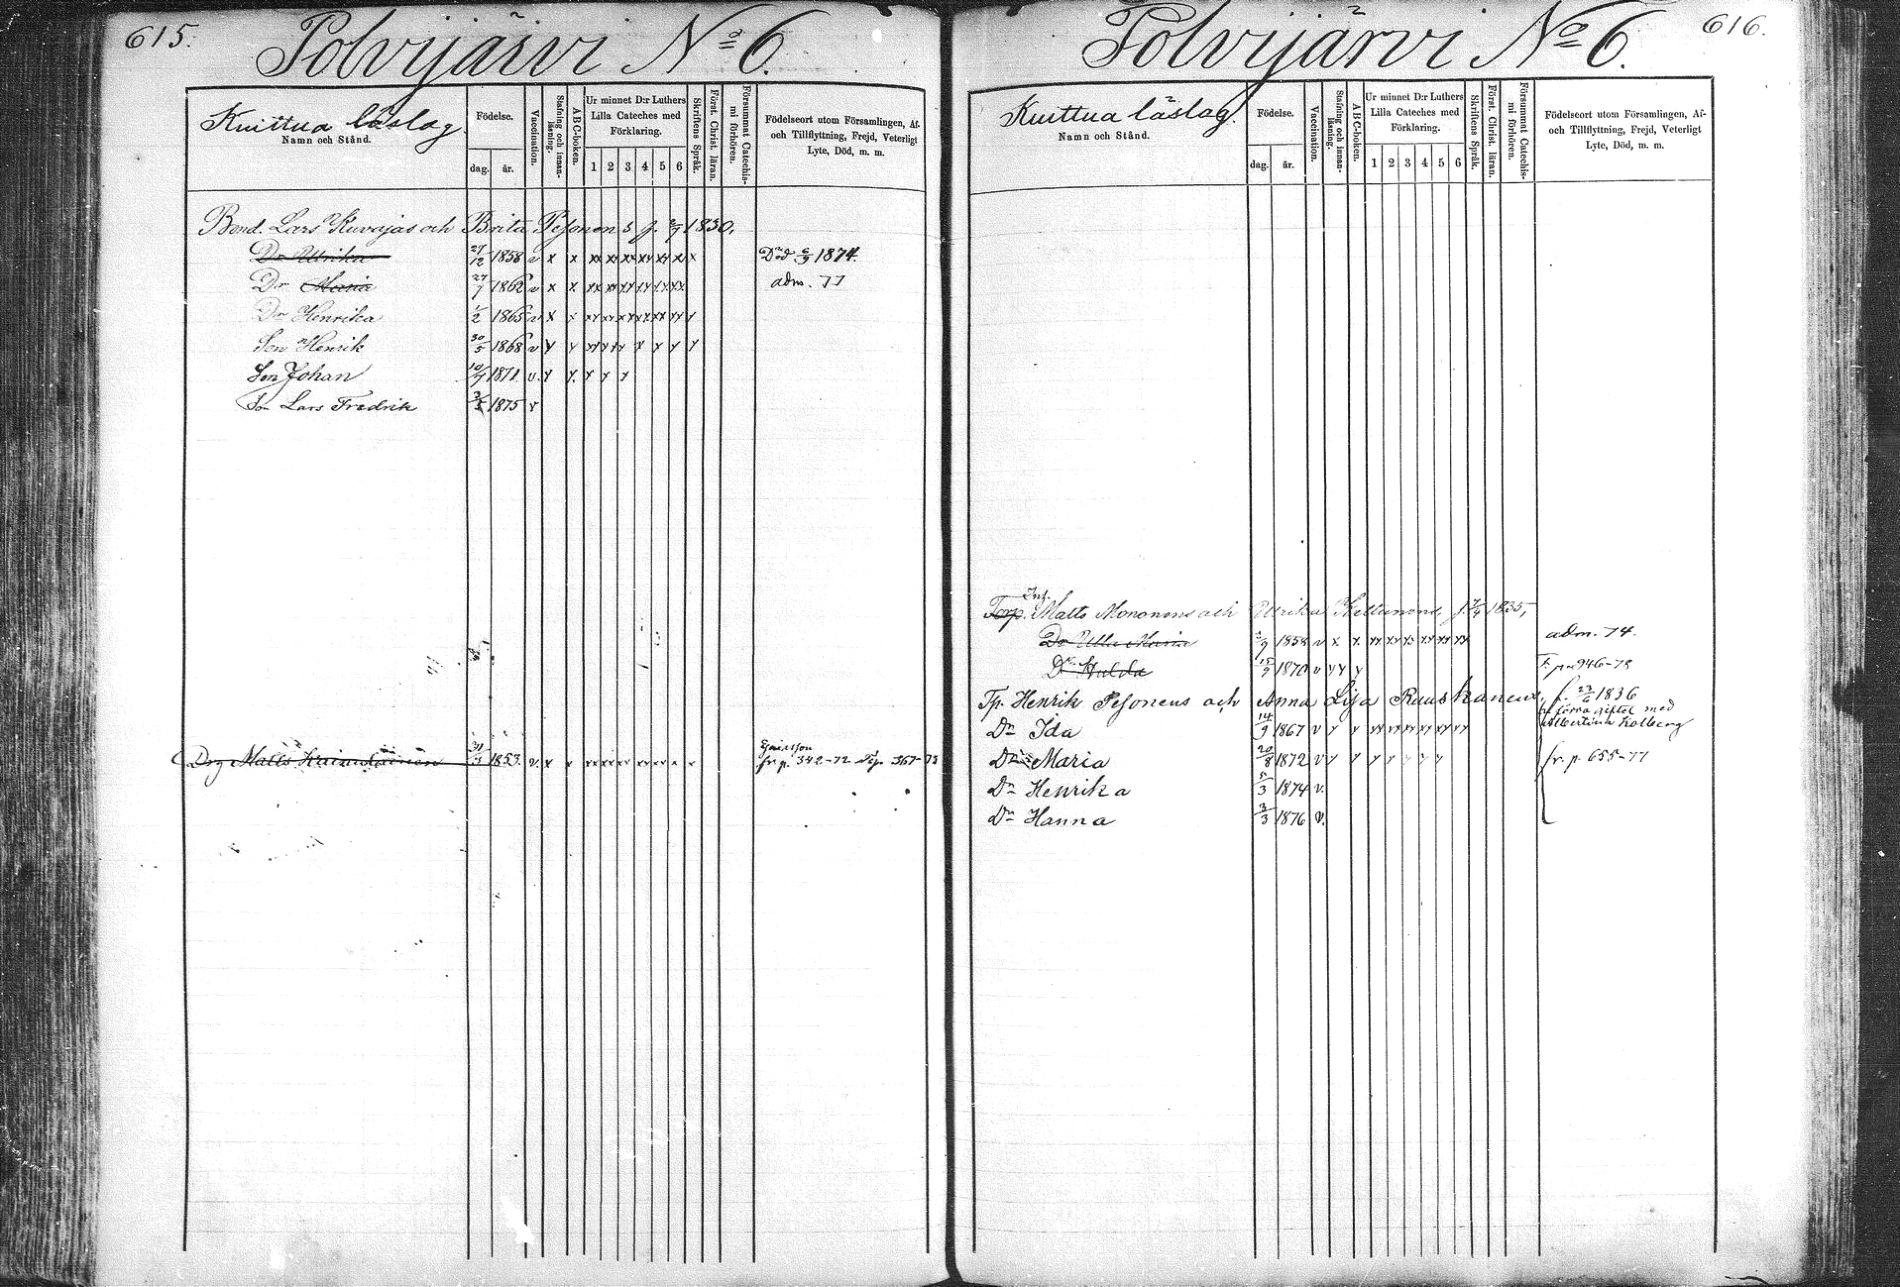 615.
Polvijärvi No 6.
Knittua läslag.
Namn och Stånd.
Födelse.
dag.
år.
Vaccination.
Stafning och innan-
läsning.
ABC-boken.
Ur minnet D:r Luthers
Lilla Cateches med
Förklaring.
1 2 3 4 5 6
Skriftens Språk.
Först. Christ. läran.
Försummat Catechis-
mi förhören.
Födelseort utom Församlingen, Af-
och Tillflyttning, Frejd, Veterligt
Lyte, Död, m. m.
Bond. Lars Kuvajas och Brita Pesonens f. 1830.
Dr Ulrika 27/12 1858 v x x xx xx xx xx xx xx x Död 1874.
Dr Maria 27/7 1862 v x x xx xx xx xx xx xx adm. 77
Dr Henrika 1/2 1865 v x x xx xx xx xx xx xx x
Son Henrik 30/5 1868 v x x xx xx x x x x
Son Johan 1871 v. x x x x x
Son Lars Fredrik 1875 v
Drg Matts 1853. v. x x xx xx xx xx x x
fr. p. 342-72 367-73
616.
Polvijärvi No 6.
Knittua läslag.
Namn och Stånd.
Födelse.
dag.
år.
Vaccination.
Stafning och innan-
läsning.
ABC-boken.
Ur minnet D:r Luthers
Lilla Cateches med
Förklaring.
1 2 3 4 5 6
Skriftens Språk.
Först. Christ. läran.
Försummat Catechis-
mi förhören.
Födelseort utom Församlingen, Af-
och Tillflyttning, Frejd, Veterligt
Lyte, Död, m. m.
Inh.
Torp. Matts Mononens och Ulrika Keltunens, f. 1835,
Dr Ulla Maria 1858 v x x xx xx xx xx xx xx adm. 74.
Dr Hulda 15/9 1870 v x x x T. p. 946-78
Tp. Henrik Pesonens och Anna Lisa Ruuskanens, f. 23/6 1836
förra giftet med
Albertina Kolberg
Dr Ida 14/9 1867 v x x xx xx xx xx xx xx
Dr Maria 20/8 1872 v x x x x x x x fr. p. 655-77
Dr Henrika 5/3 1874 v.
Dr Hanna 3/3 1876 v.